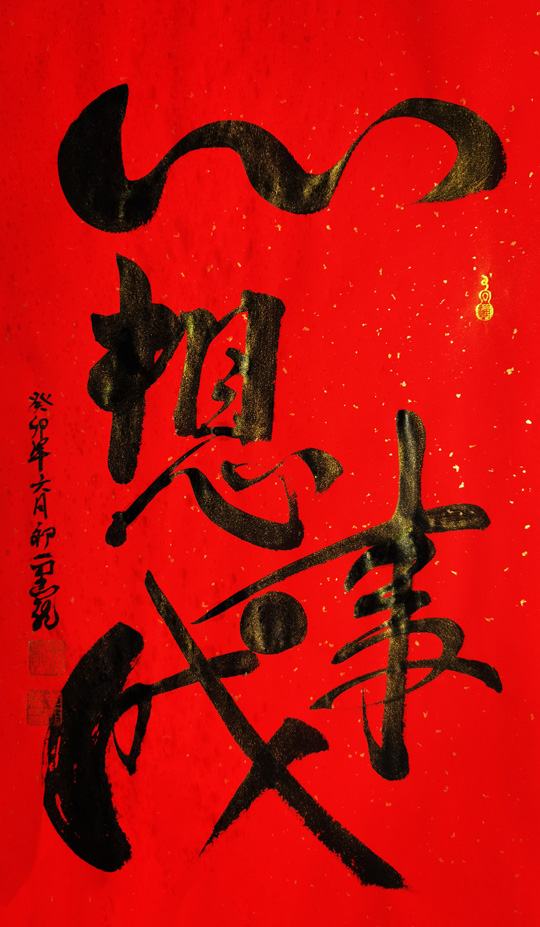 心想事成
癸卯年六月卯一